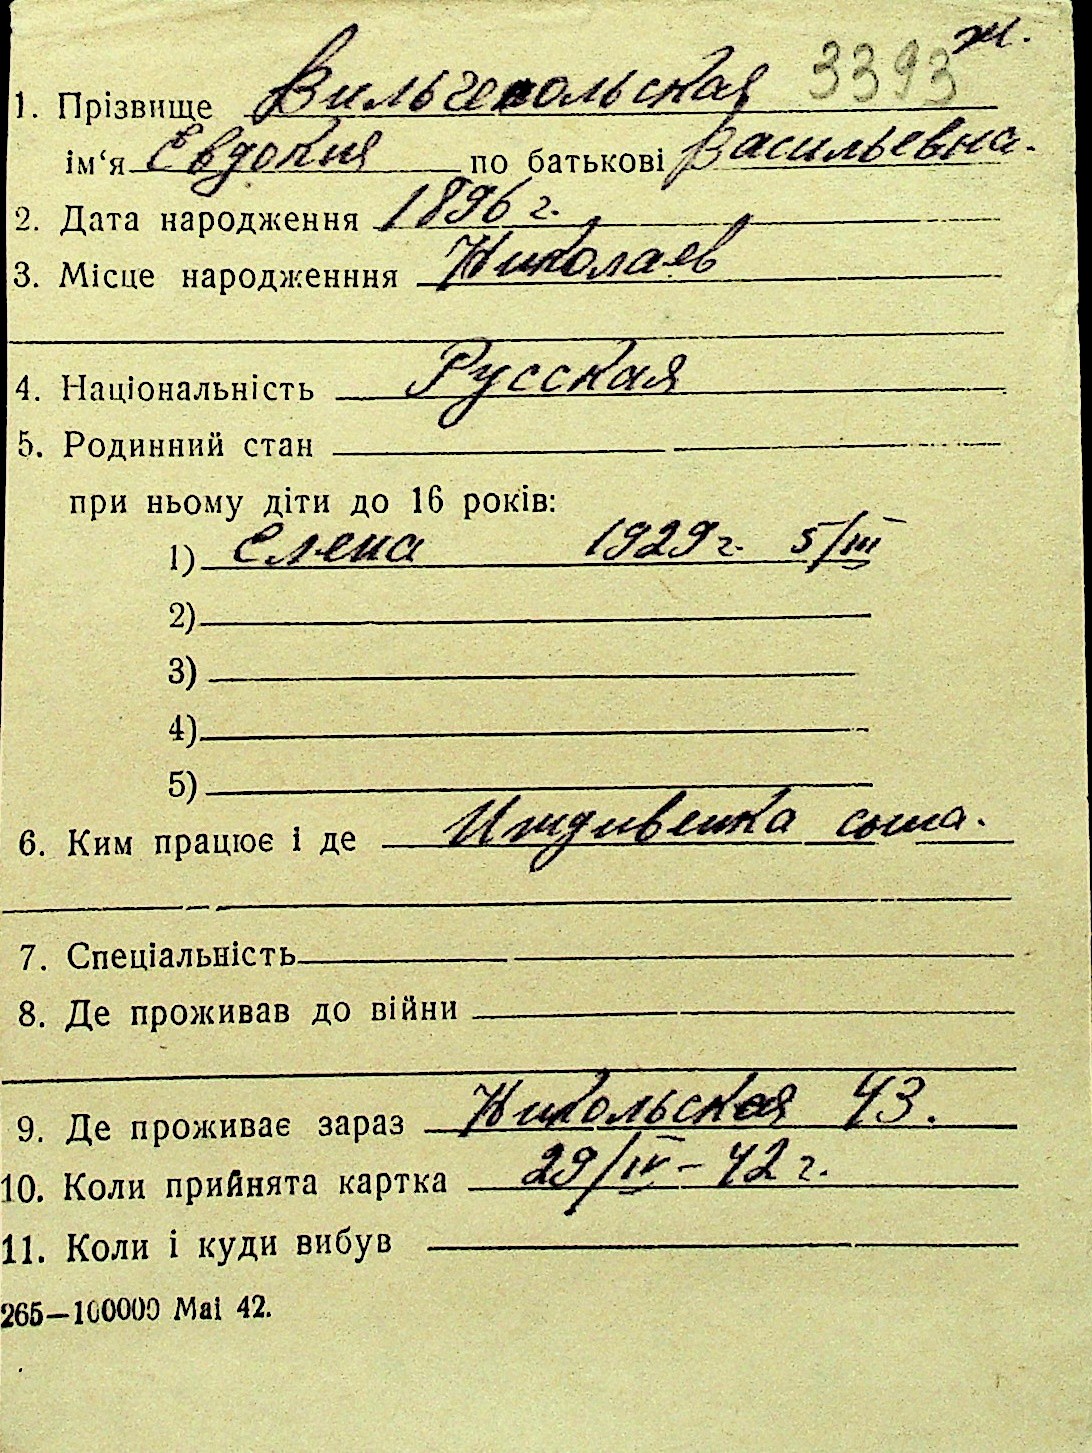 ж.
3393
1. Прізвище Вильчепольская
ім‘я Евдокия по батькові Васильевна.
2. Дата народження 1896 г.
3. Місце народженння Николаев
4. Національність Русская
5. Родинний стан
при ньому діти до 16 років:
1) Елена 1929 г. 5/III
2)
3)
4)
5)
6. Ким працює і де Иждивенка сына.
7. Спеціальність
8. Де проживав до війни
9. Де проживає зараз Никольская 43.
10. Коли прийнята картка 29/IV–42 г.
11. Коли і куди вибув
265—100000 Mai 42.